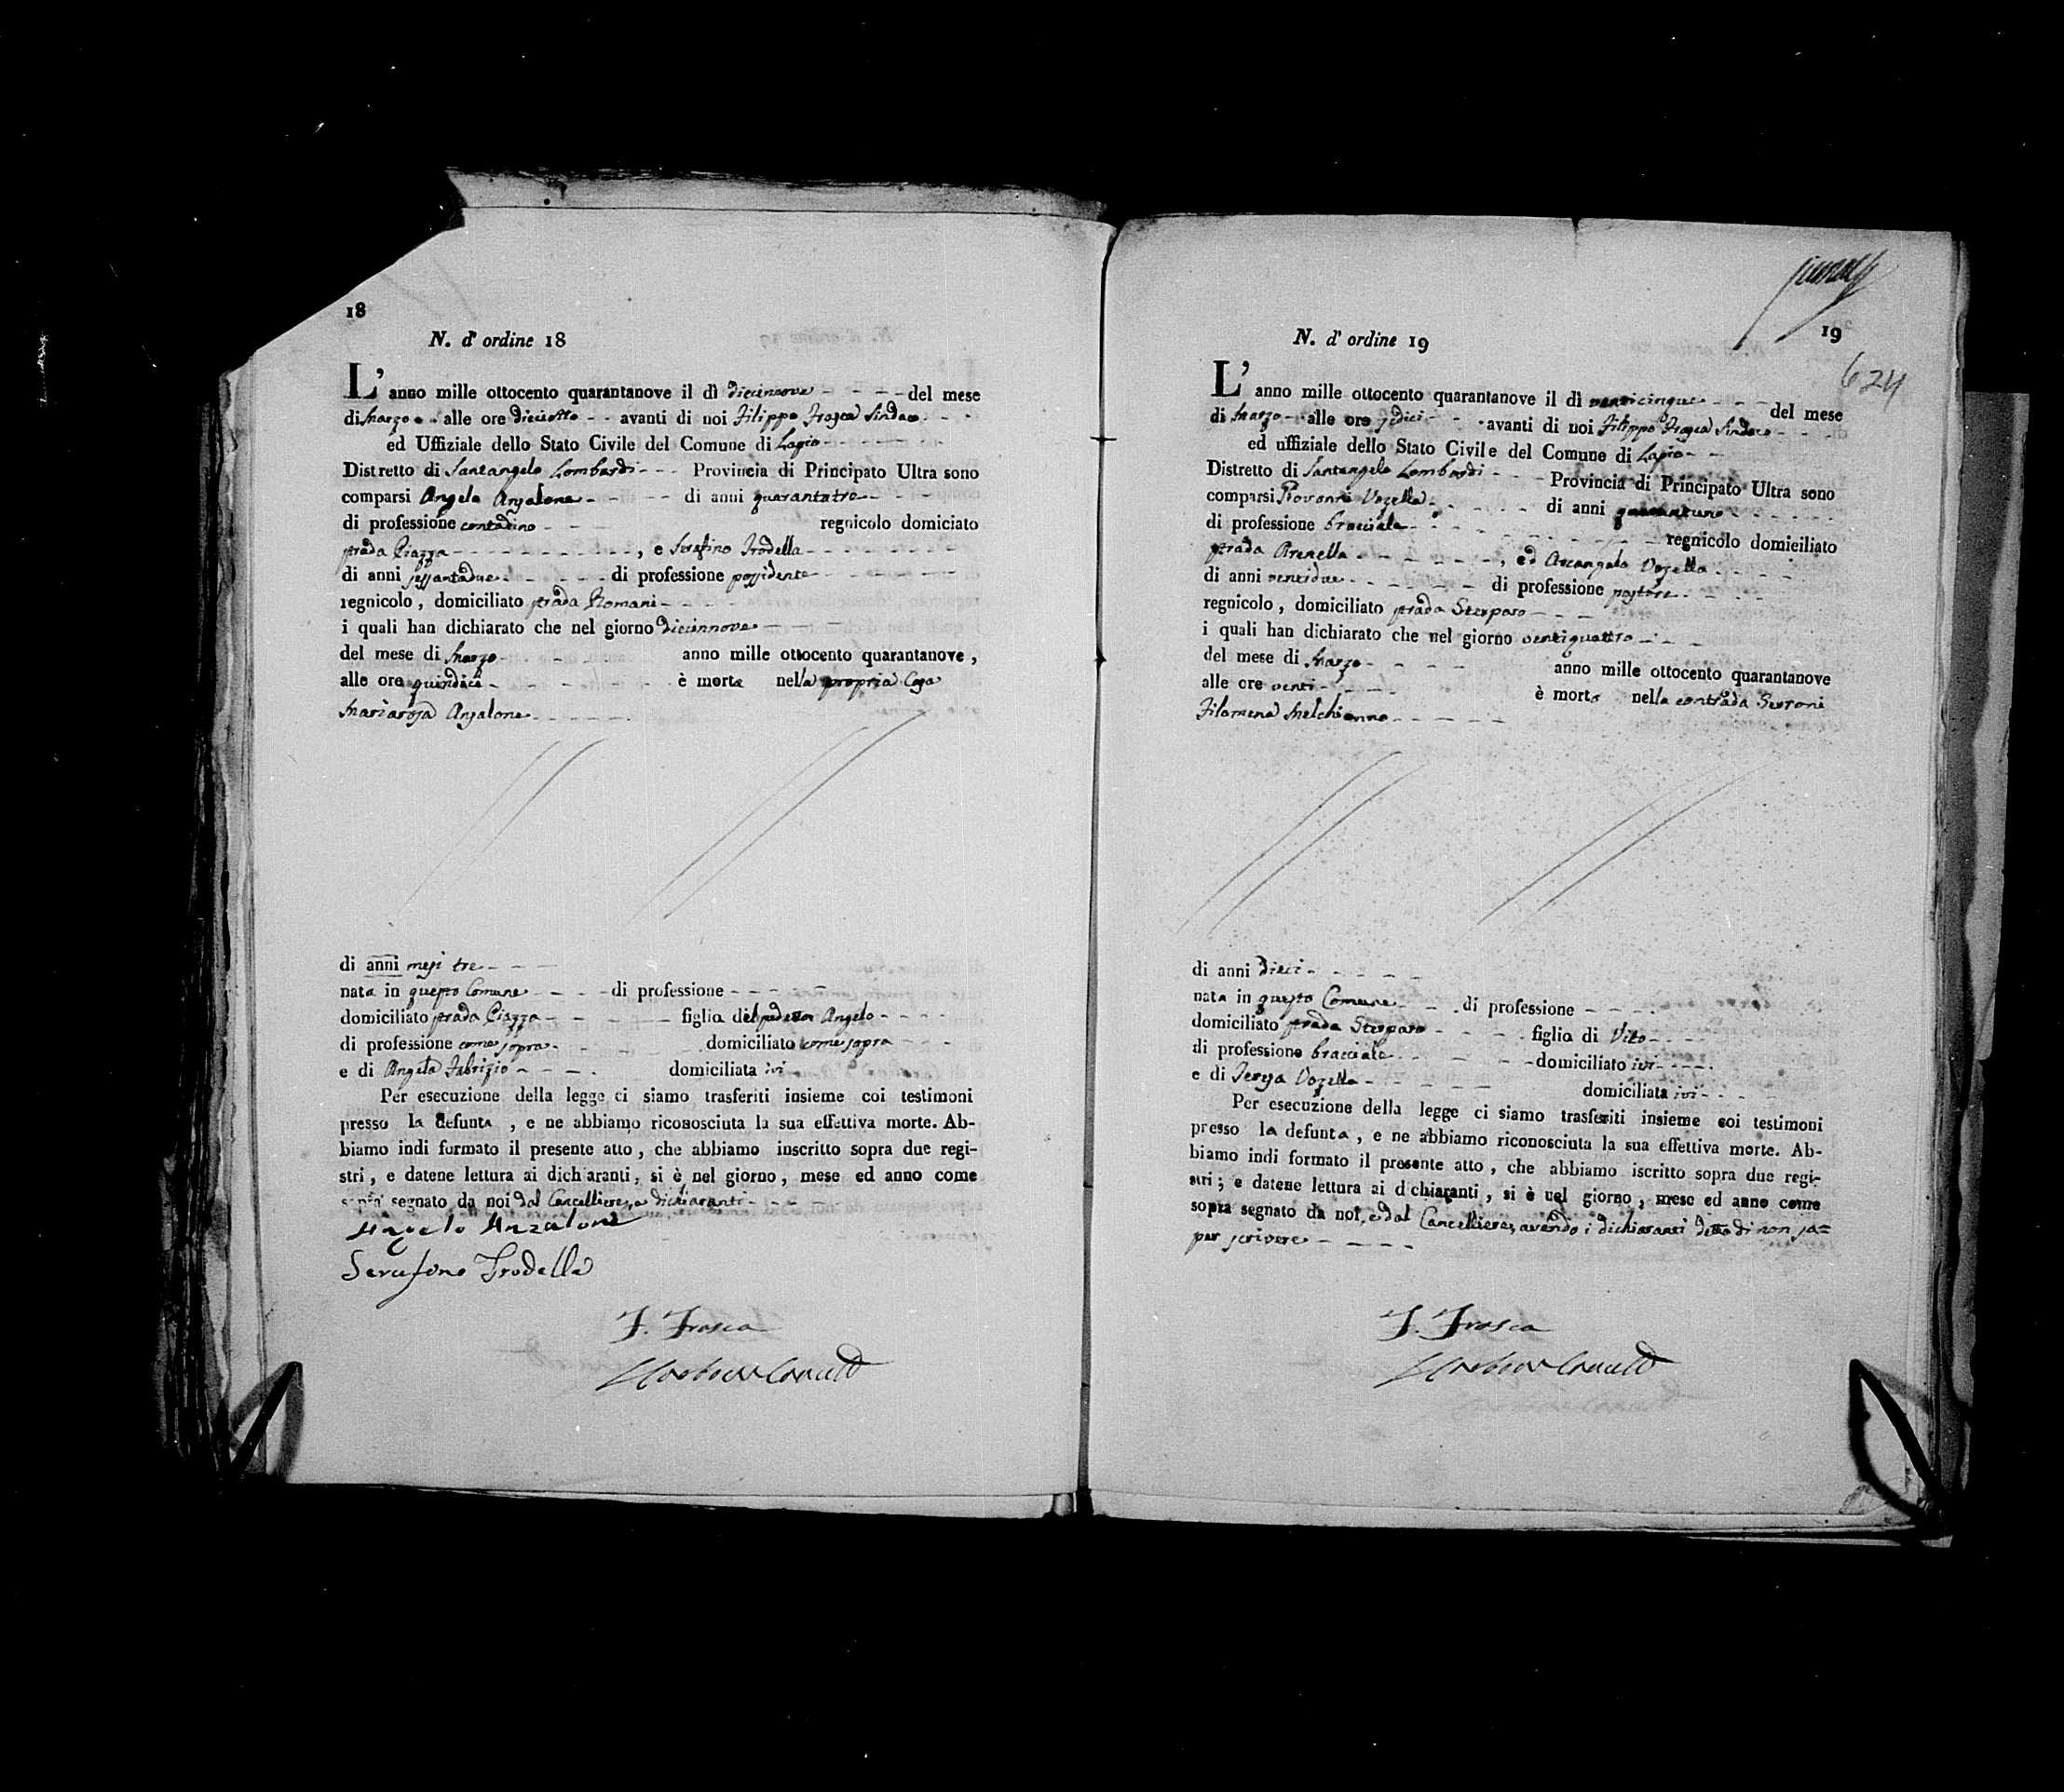 18
N. d' ordine 18
L' anno mille ottocento quarantanove il dì diciannove del mese
di Marzo alle ore diciotto avanti di noi Filippo Frosca Sindaco
ed Uffiziale dello Stato Civile del Comune di Lapio
Distretto di Santangelo Lombardi Provincia di Principato Ultra sono
comparsi Angelo Anzalone di anni quarantatre
di professione contadino regnicolo domiciato
strada Piazza , e Serafino Trodella
di anni sessantadue di professione possidente
regnicolo , domiciliato strada Romani
i quali han dichiarato che nel giorno diciannove
del mese di Marzo anno mille ottocento quarantanove ,
alle ore quindici è morta nella propria Casa
Mariarosa Anzalone
di anni mesi tre
nata in questo Comune di professione
domiciliato strada Piazza figlia del Angelo
di professione come sopra domiciliato come sopra
e di Angela Fabrizio domiciliata ivi
Per esecuzione della legge ci siamo trasferiti insieme coi testimoni
presso la defunta , e ne abbiamo riconosciuta la sua effettiva morte. Ab-
biamo indi formato il presente atto , che abbiamo inscritto sopra due regi-
stri , e datene lettura ai dichiaranti, si è nel giorno , mese ed anno come
sopra segnato da noi dal Cancelliere, e dichiaranti
Angelo Anzalone
Serafino Trodella
F. Frosca
19
N. d' ordine 19
624
L' anno mille ottocento quarantanove il dì venticinque del mese
di Marzo alle ore avanti di noi Filippo Frosca Sindaco
ed uffiziale dello Stato Civile del Comune di Lapio
Distretto di Santangelo Lombardi Provincia di Principato Ultra sono
comparsi Giovanni Vozella di anni
di professione bracciale regnicolo domiciliato
strada Arenella , ed Arcangelo Vozella
di anni ventidue di professione pastore
regnicolo , domiciliato strada Sterparo
i quali han dichiarato che nel giorno ventiquattro
del mese di Marzo anno mille ottocento quarantanove
alle ore venti è morta nella contrada Serroni
Filomena Melchionno
di anni dieci
nata in questo Comune di professione
domiciliato strada Sterparo figlia di Vito
di professione bracciale domiciliato ivi
e di Teresa Vozella domiciliata ivi
Per esecuzione della legge ci siamo trasferiti insieme coi testimoni
presso la defunta , e ne abbiamo riconosciuta la sua effettiva morte. Ab-
biamo indi formato il presente atto , che abbiamo iscritto sopra due regi-
stri ; e datene lettura ai dichiaranti , si è nel giorno , mese ed anno come
sopra segnato da noi, e dal Cancelliere, avendo i dichiaranti detto di non sa=
per scrivere
F. Frosca